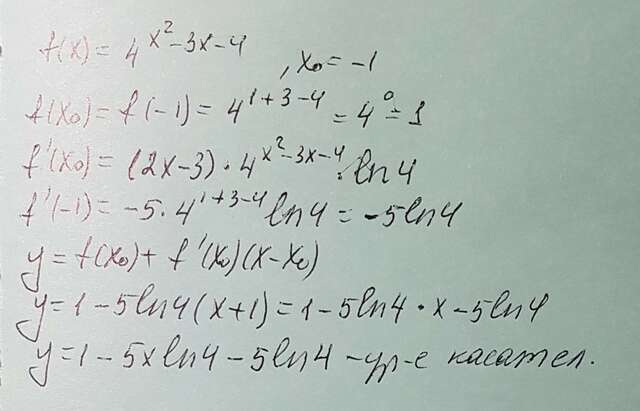 f(x) = 4^{x²-3x-4}, x₀ = -1
f(x₀) = f(-1) = 4^{1+3-4} = 4⁰ = 1
f'(x₀) = (2x-3) · 4^{x²-3x-4} · ln4
f'(-1) = -5 · 4^{1+3-4} ln4 = -5ln4
y = f(x₀) + f'(x₀)(x-x₀)
y = 1 - 5ln4(x+1) = 1 - 5ln4 · x - 5ln4
y = 1 - 5xln4 - 5ln4 - ур-е касател.